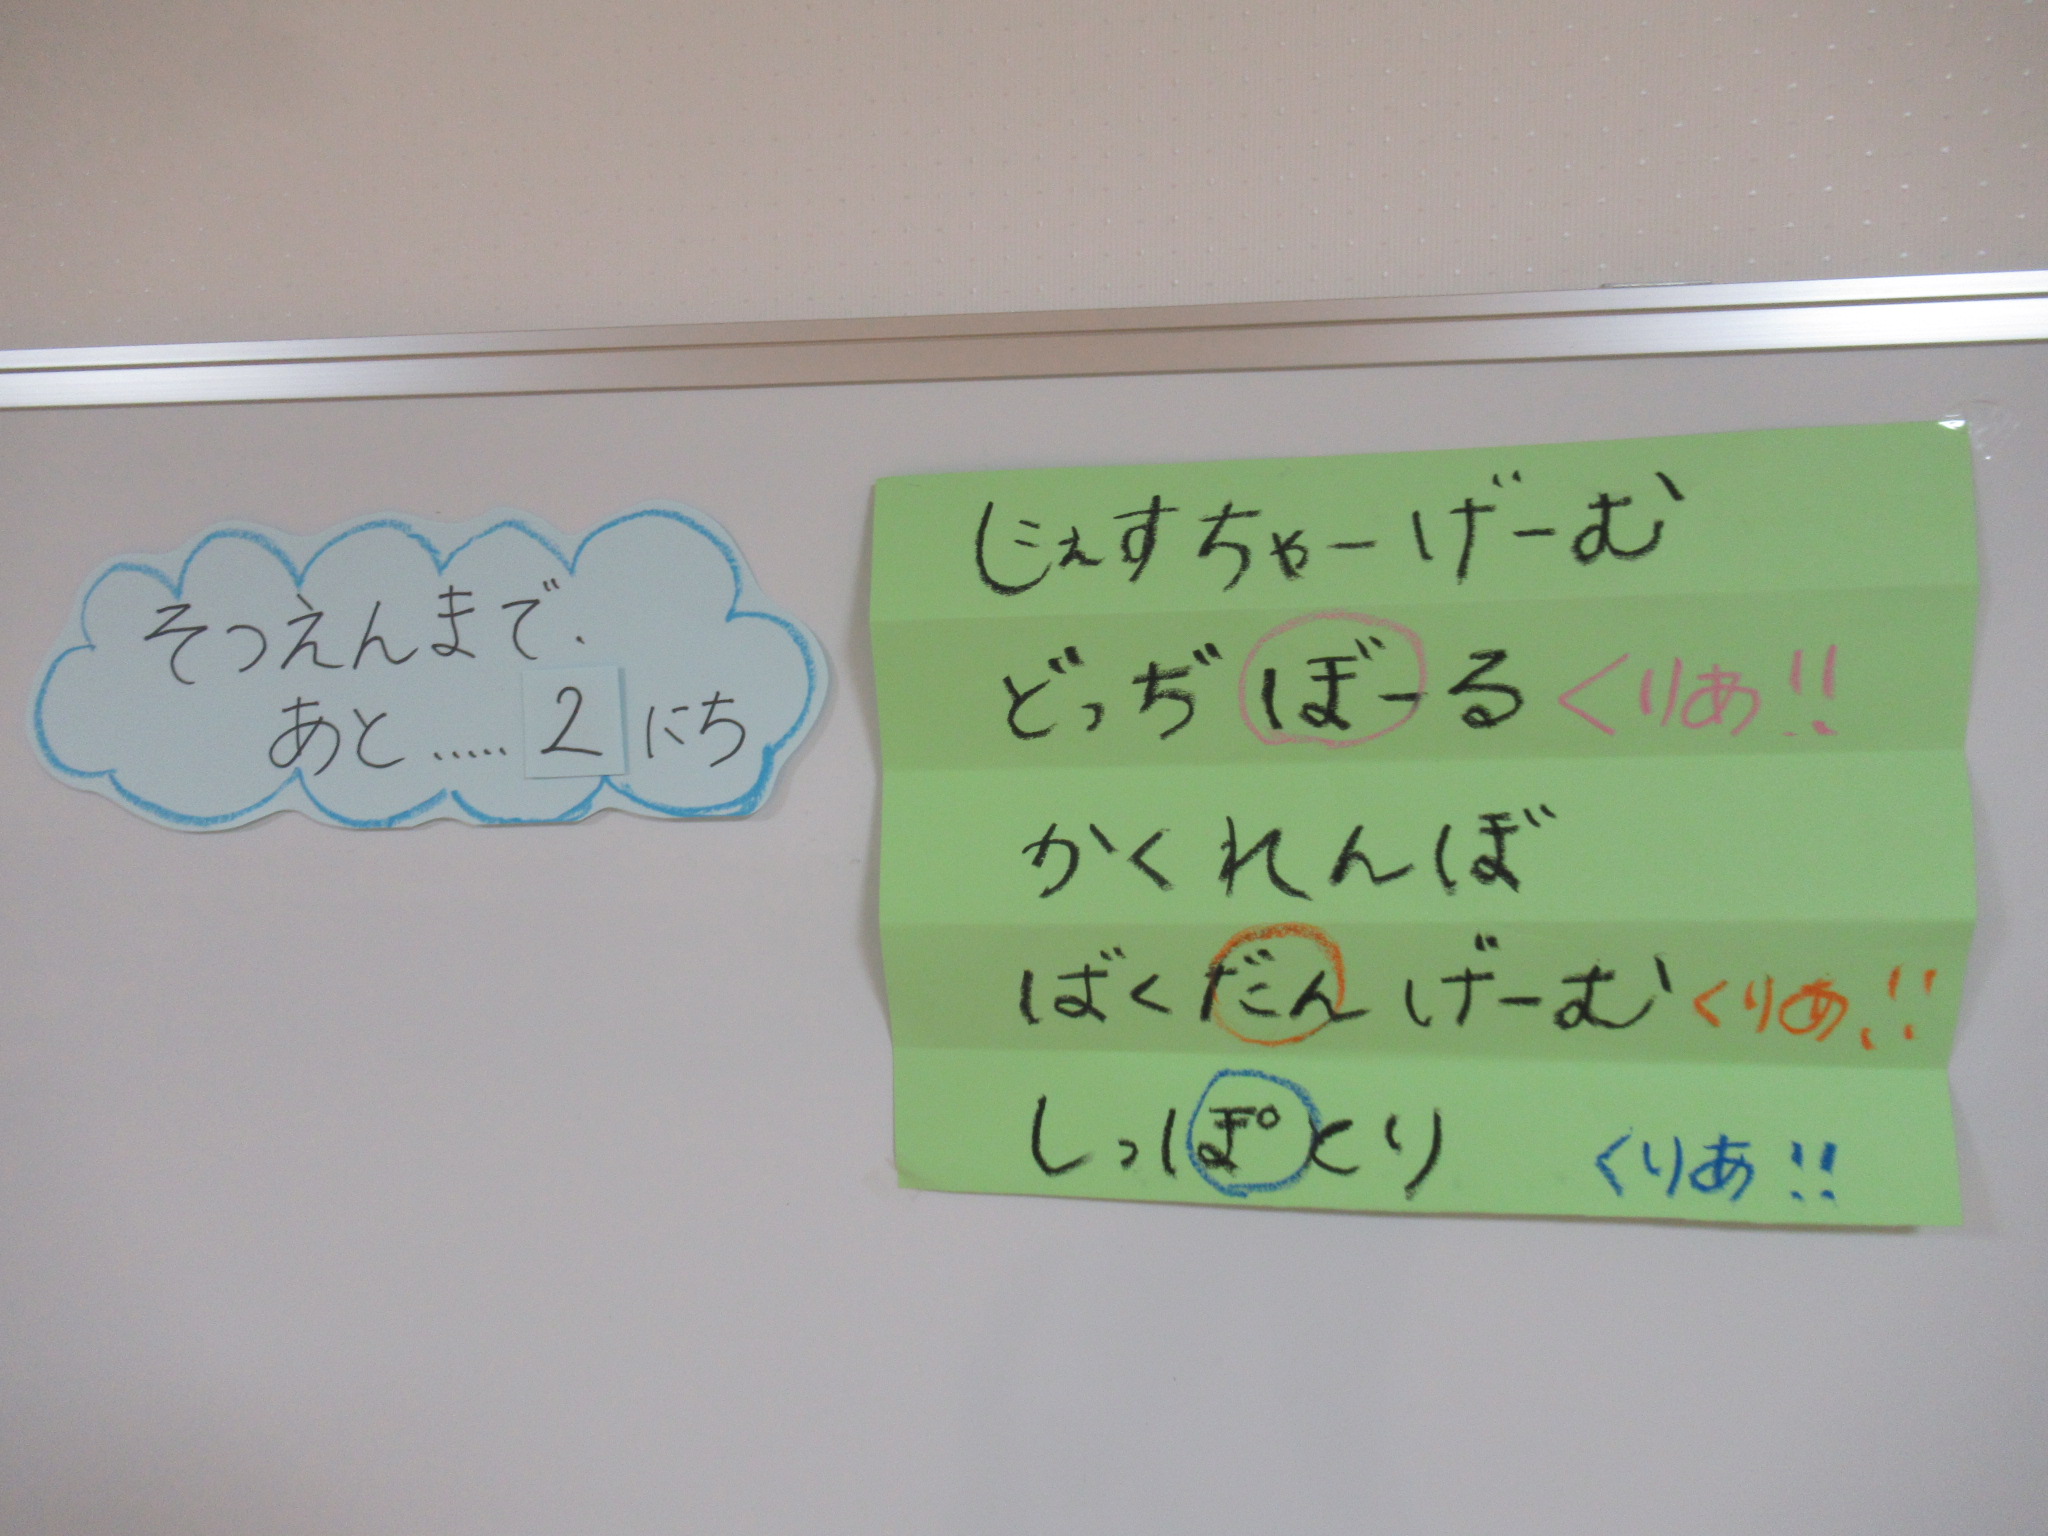 そつえんまで、
あと.....2にち
じぇすちゃーげーむ
どっぢぼーる くりあ!!
かくれんぼ
ばくだんげーむ くりあ!!
しっぽとり くりあ!!